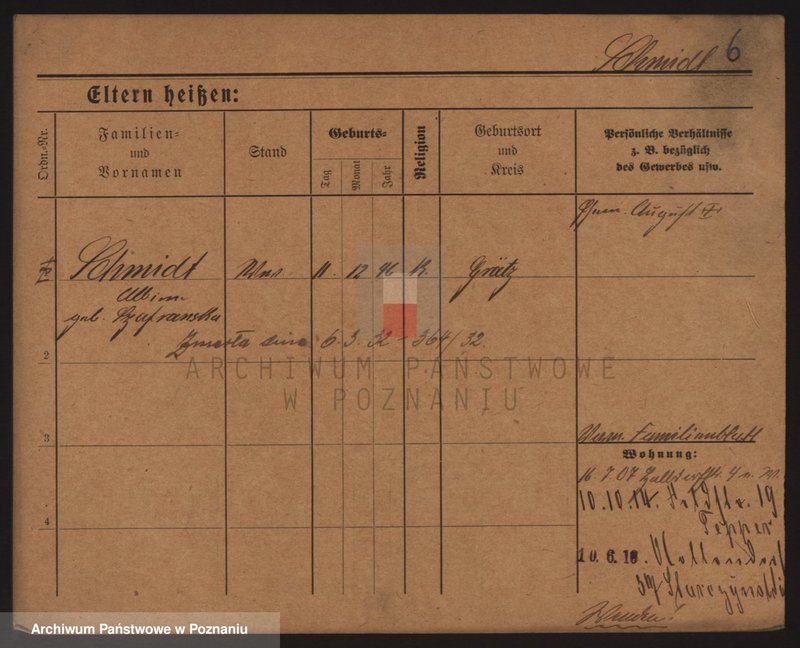 Schmidt 6
Eltern heißen:
Ordn.-Nr.
Familien-
und
Vornamen
Stand
Geburts-
Tag
Monat
Jahr
Religion
Geburtsort
und
Kreis
Persönliche Verhältnisse
z. B. bezüglich
des Gewerbes usw.
August
Schmidt 11. 12 46 K. Grätz
geb. Szafranska
Zmarła dnia 6. 3. 32 - 364/32.
2
ARCHIWUM PAŃSTWOWE
W POZNANIU
3
Familienblatt
Wohnung:
16 7 07
10.10.14. 19
Tepper
4
10.6.18.
Starczynski
Archiwum Państwowe w Poznaniu